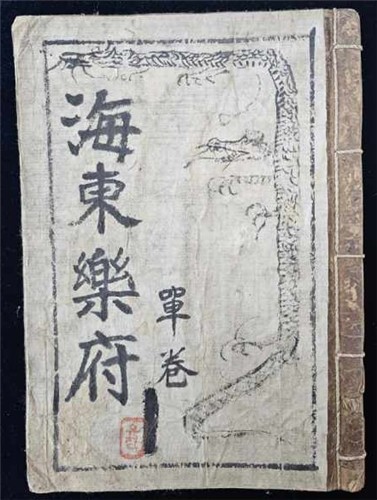 海東樂府
單卷